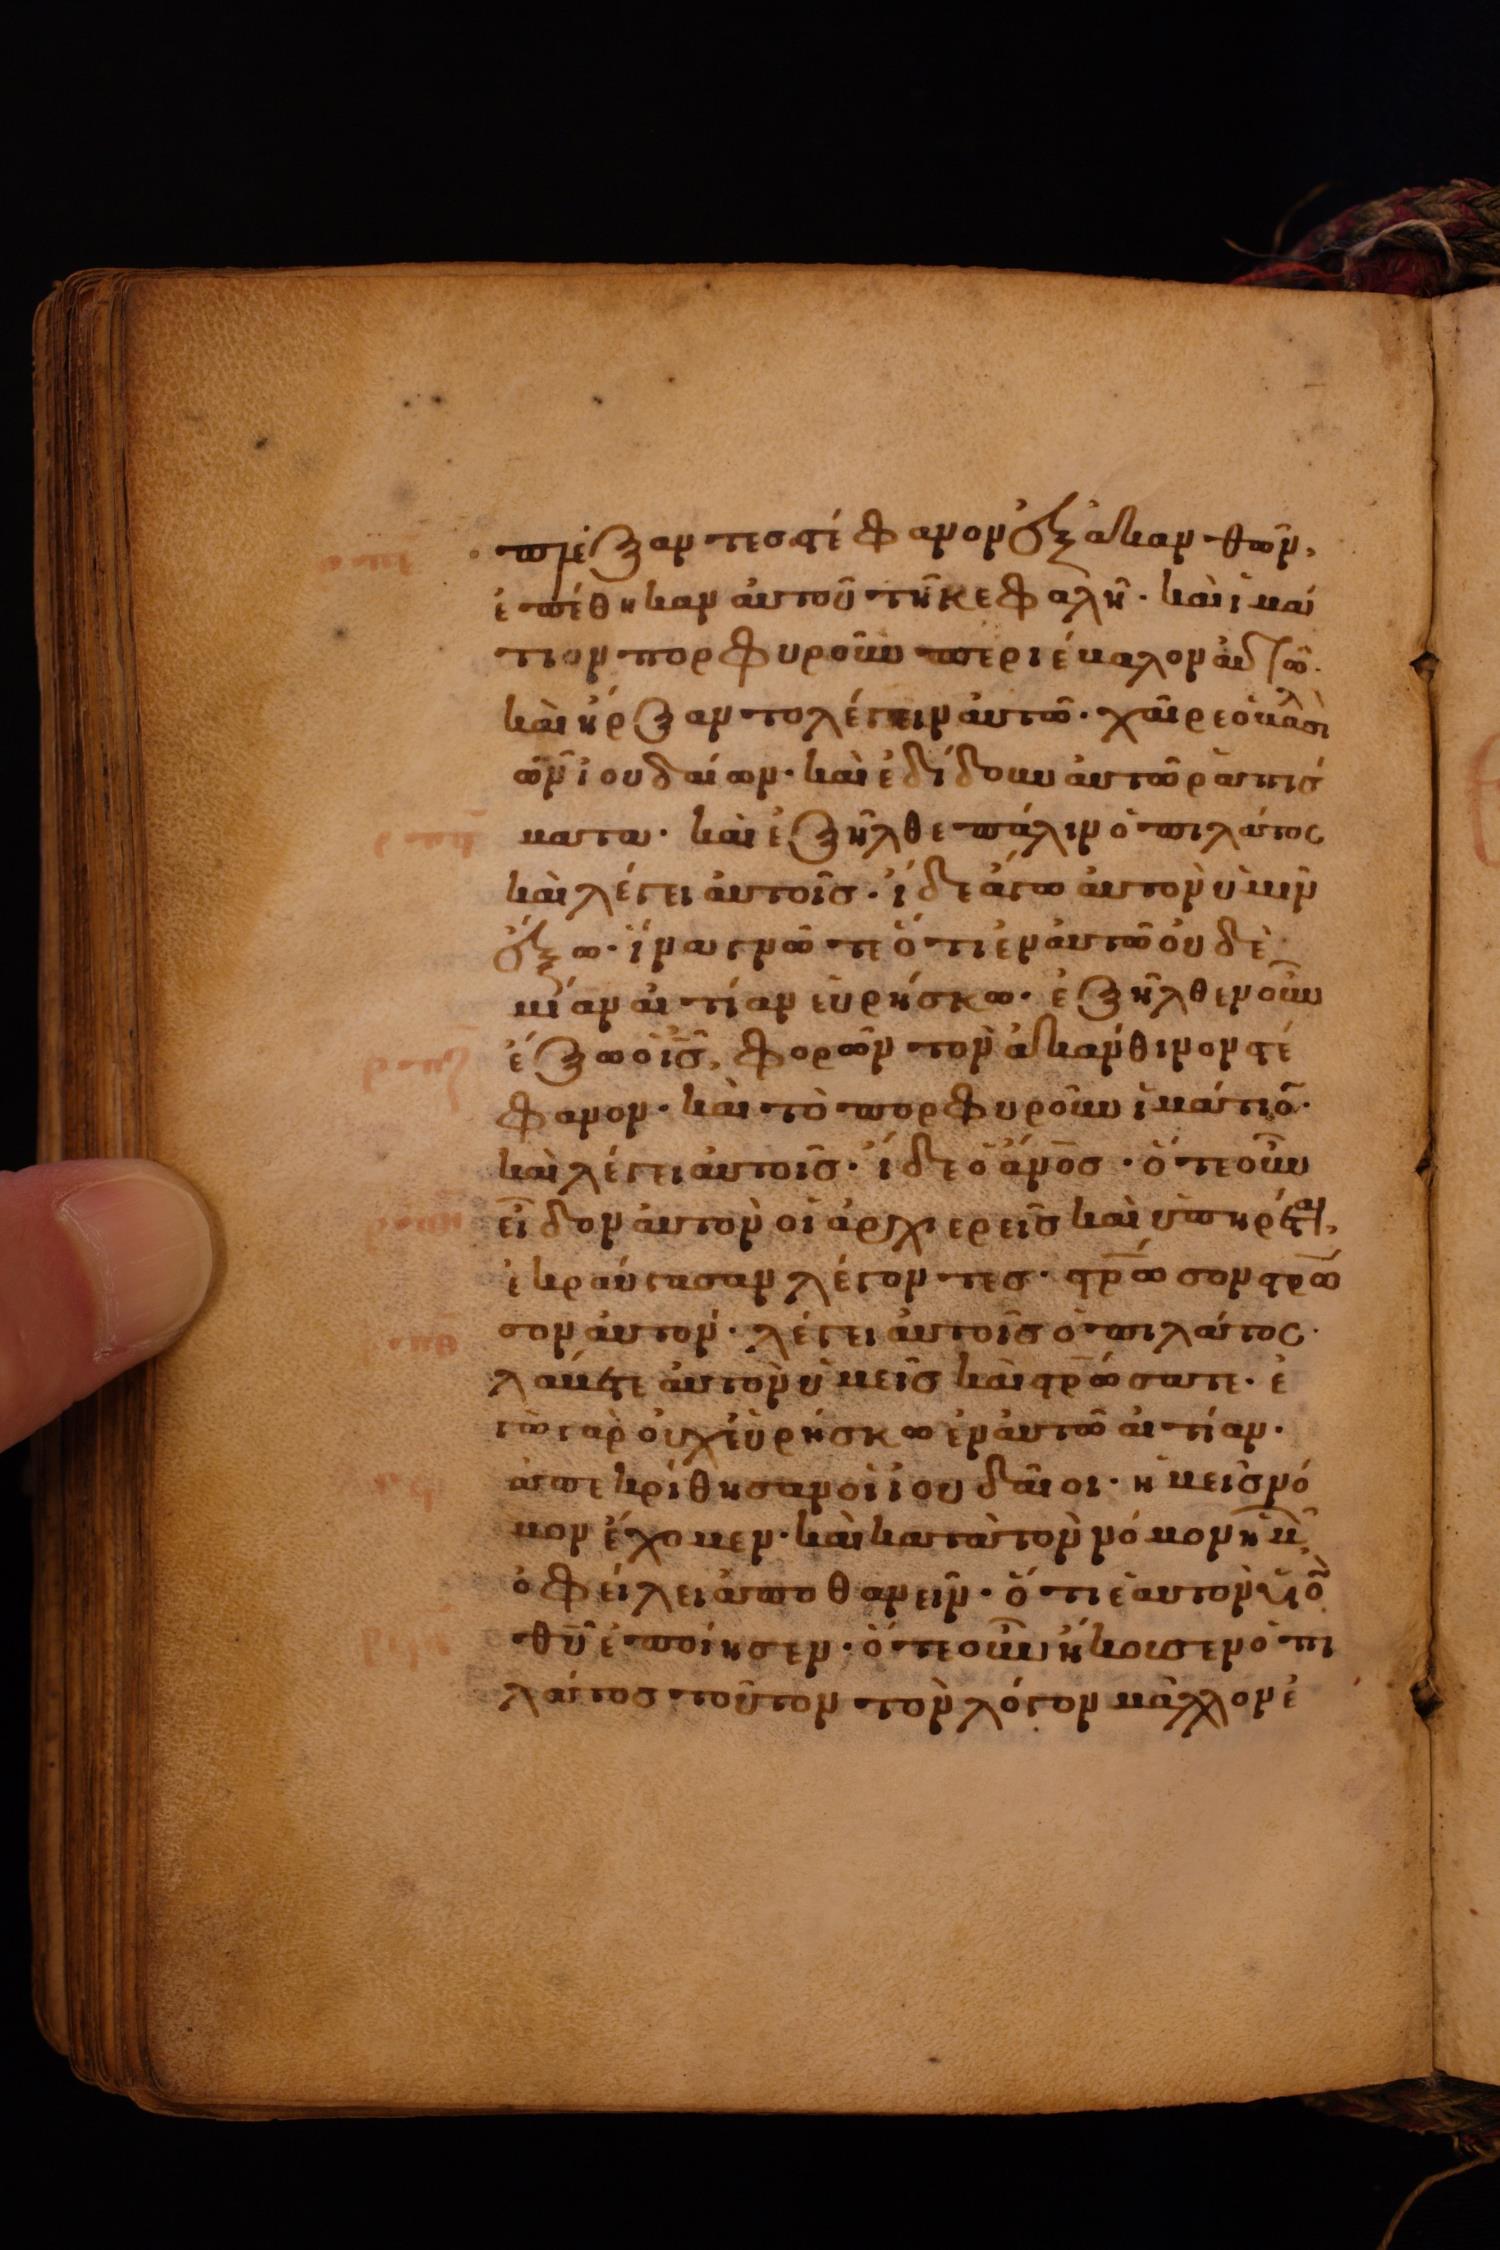 πλέξαντες στέφανον ἐξ ἀκανθῶν,
ἐπέθηκαν αὐτοῦ τῆ κεφαλῆ· καὶ ἱμά
τιον πορφυροῦν περιέβαλον αὐτῶ·
καὶ ἤρξαντο λέγειν αὐτῶ· χαῖρε ὁ βασιλεὺς
τῶν ἰουδαίων· καὶ ἐδίδουν αὐτῶ ῥαπίσ
ματα· καὶ ἐξῆλθε πάλιν ὁ πιλάτος
καὶ λέγει αὐτοῖς· ἴδε ἄγω αὐτὸν ὑμῖν
ἔξω· ἵνα γνῶτε ὅτι ἐν αὐτῶ οὐδὲ
μίαν αἰτίαν εὑρήσκω· ἐξῆλθεν οὖν
ἔξω ὁ ις, φορῶν τὸν ἀκάνθινον στέ
φανον· καὶ τὸ πορφυροῦν ἱμάτιον·
καὶ λέγει αὐτοῖς· ἴδε ὁ ἄνος· ὅτε οὖν
εἶδον αὐτὸν οἱ ἀρχιερεῖς καὶ ὑπηρέται,
ἐκραύγασαν λέγοντες· στρωσον στρω
σον αὐτόν· λέγει αὐτοῖς ὁ πιλάτος·
λάβετε αὐτὸν ὑμεῖς καὶ στρώσατε· ἐ
γὼ γὰρ οὐχ εὑρήσκω ἐν αὐτῶ αἰτίαν·
ἀπεκρίθησαν οἱ ἰουδαῖοι· ἡμεῖς νό
μον ἔχομεν· καὶ κατὰ τὸν νόμον ἡμ
ὀφείλει ἀποθανεῖν· ὅτι ἑαυτὸν υἱὸν
θυ ἐποίησεν· ὅτε οὖν ἤκουσεν ὁ πι
λάτος τοῦτον τὸν λόγον μᾶλλον ἐ